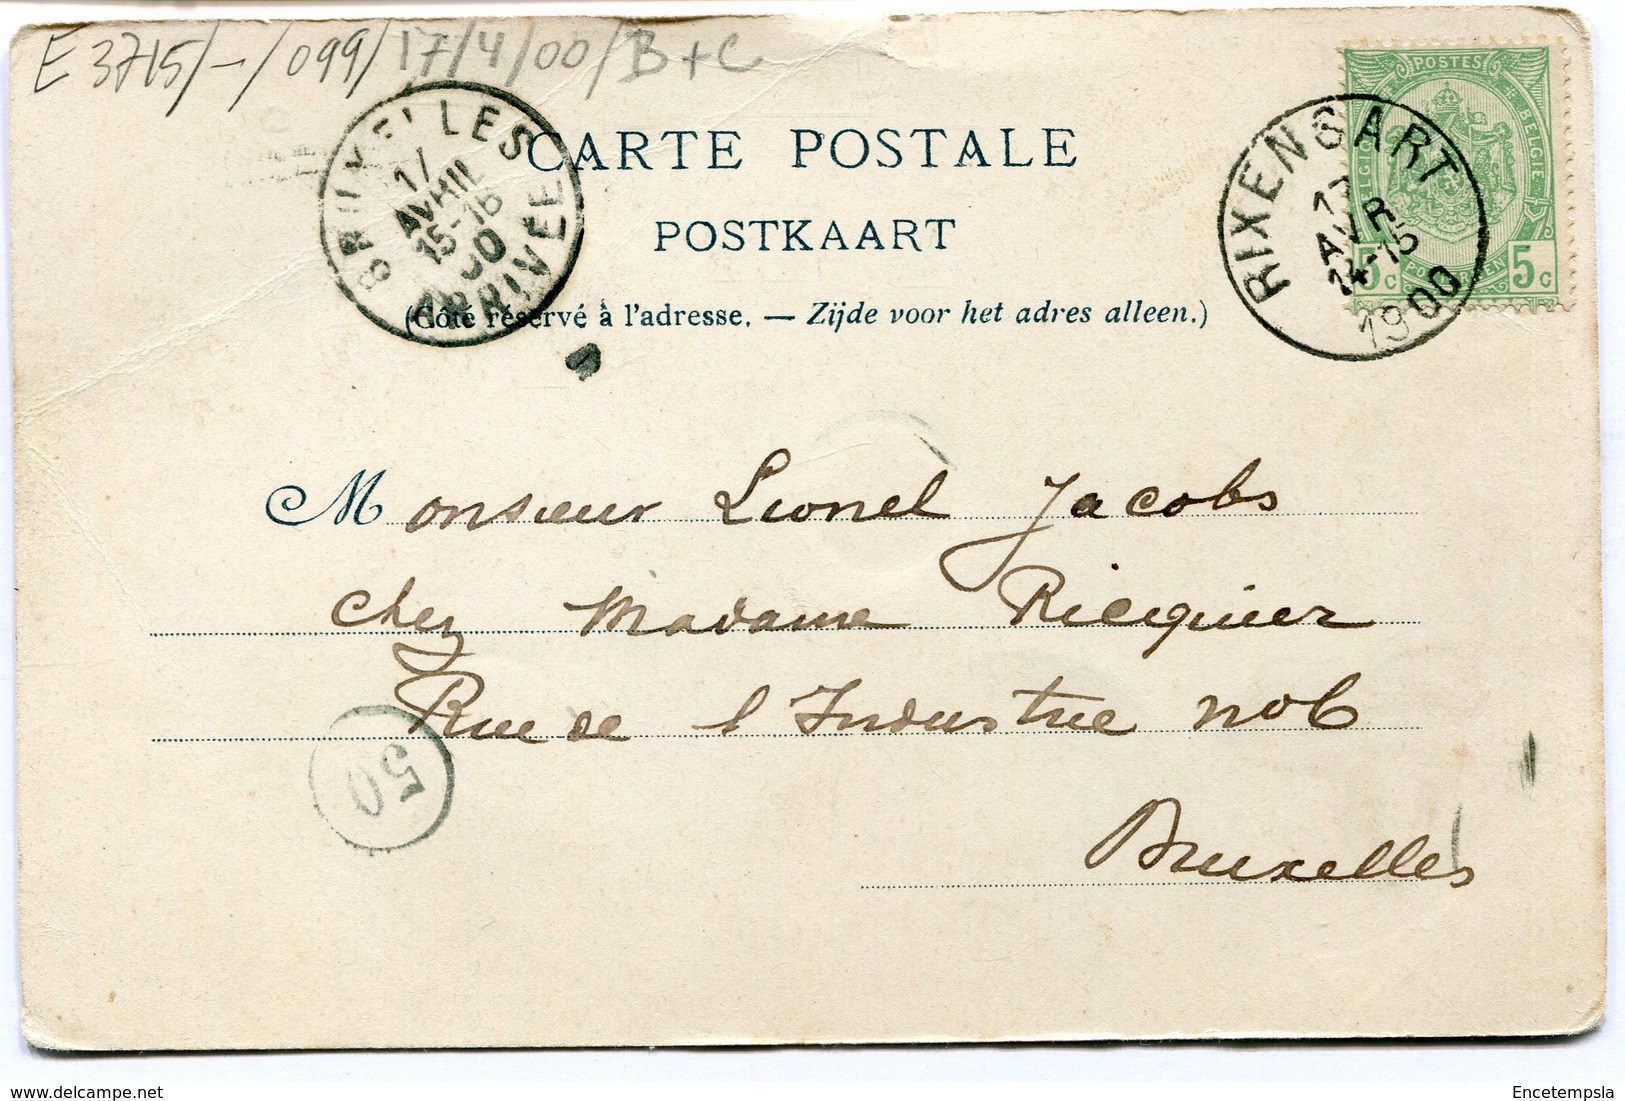 E 3715/-/099/17/4/00/B+C
BRUXELLES
17
AVRIL
15-16
00
ARRIVÉE
CARTE POSTALE
POSTKAART
(Côté réservé à l'adresse. — Zijde voor het adres alleen.)
RIXENSART
17
AVR
14-15
1900
POSTES
BELGIQUE
BELGIE
POSTERIJEN
5c
5c
Monsieur Lionel Jacobs
chez Madame Ricquier
Rue de l Industrie no6
50
Bruxelles
Delcampe.net
Encetempsla